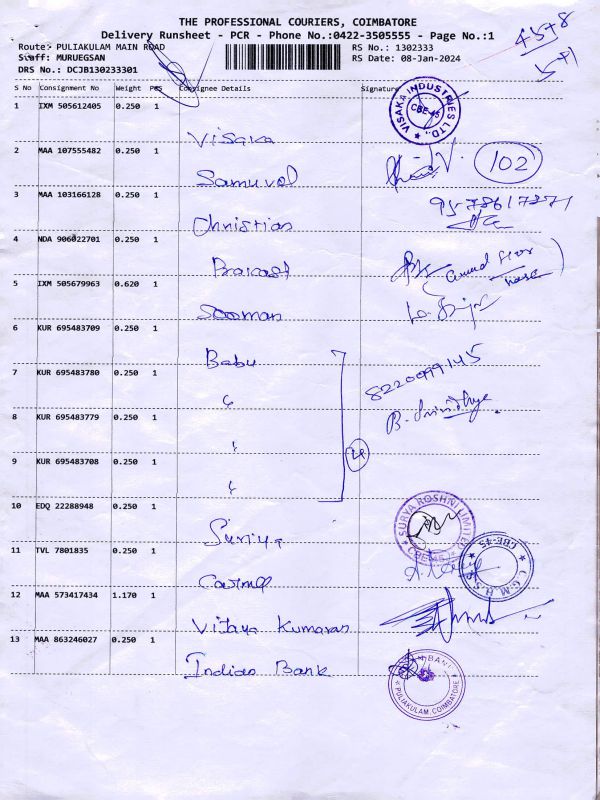 THE PROFESSIONAL COURIERS, COIMBATORE
Delivery Runsheet - PCR - Phone No.:0422-3505555 - Page No.:1
Route:- PULIAKULAM MAIN ROAD RS No.: 1302333
Staff: MURUEGSAN RS Date: 08-Jan-2024
DRS No.: DCJB130233301
S No Consignment No Weight PCS Consignee Details Signature
1 IXM 505612405 0.250 1 Visaka VISAKA INDUSTRIES LTD., CBE-45
2 MAA 107555482 0.250 1 Samuvel 102
3 MAA 103166128 0.250 1 Christian
4 NDA 906022701 0.250 1 Prakash
5 IXM 505679963 0.620 1 Sooman
6 KUR 695483709 0.250 1 Babu
7 KUR 695483780 0.250 1 "
8 KUR 695483779 0.250 1 " B. Srinidhya.
9 KUR 695483708 0.250 1 "
10 EDQ 22288948 0.250 1 Suriya SURYA ROSHNI LIMITED CBE-45
11 TVL 7801835 0.250 1 CBE-45
12 MAA 573417434 1.170 1 Vijaya Kumaran
13 MAA 863246027 0.250 1 Indian Bank BANK PULIAKULAM, COIMBATORE